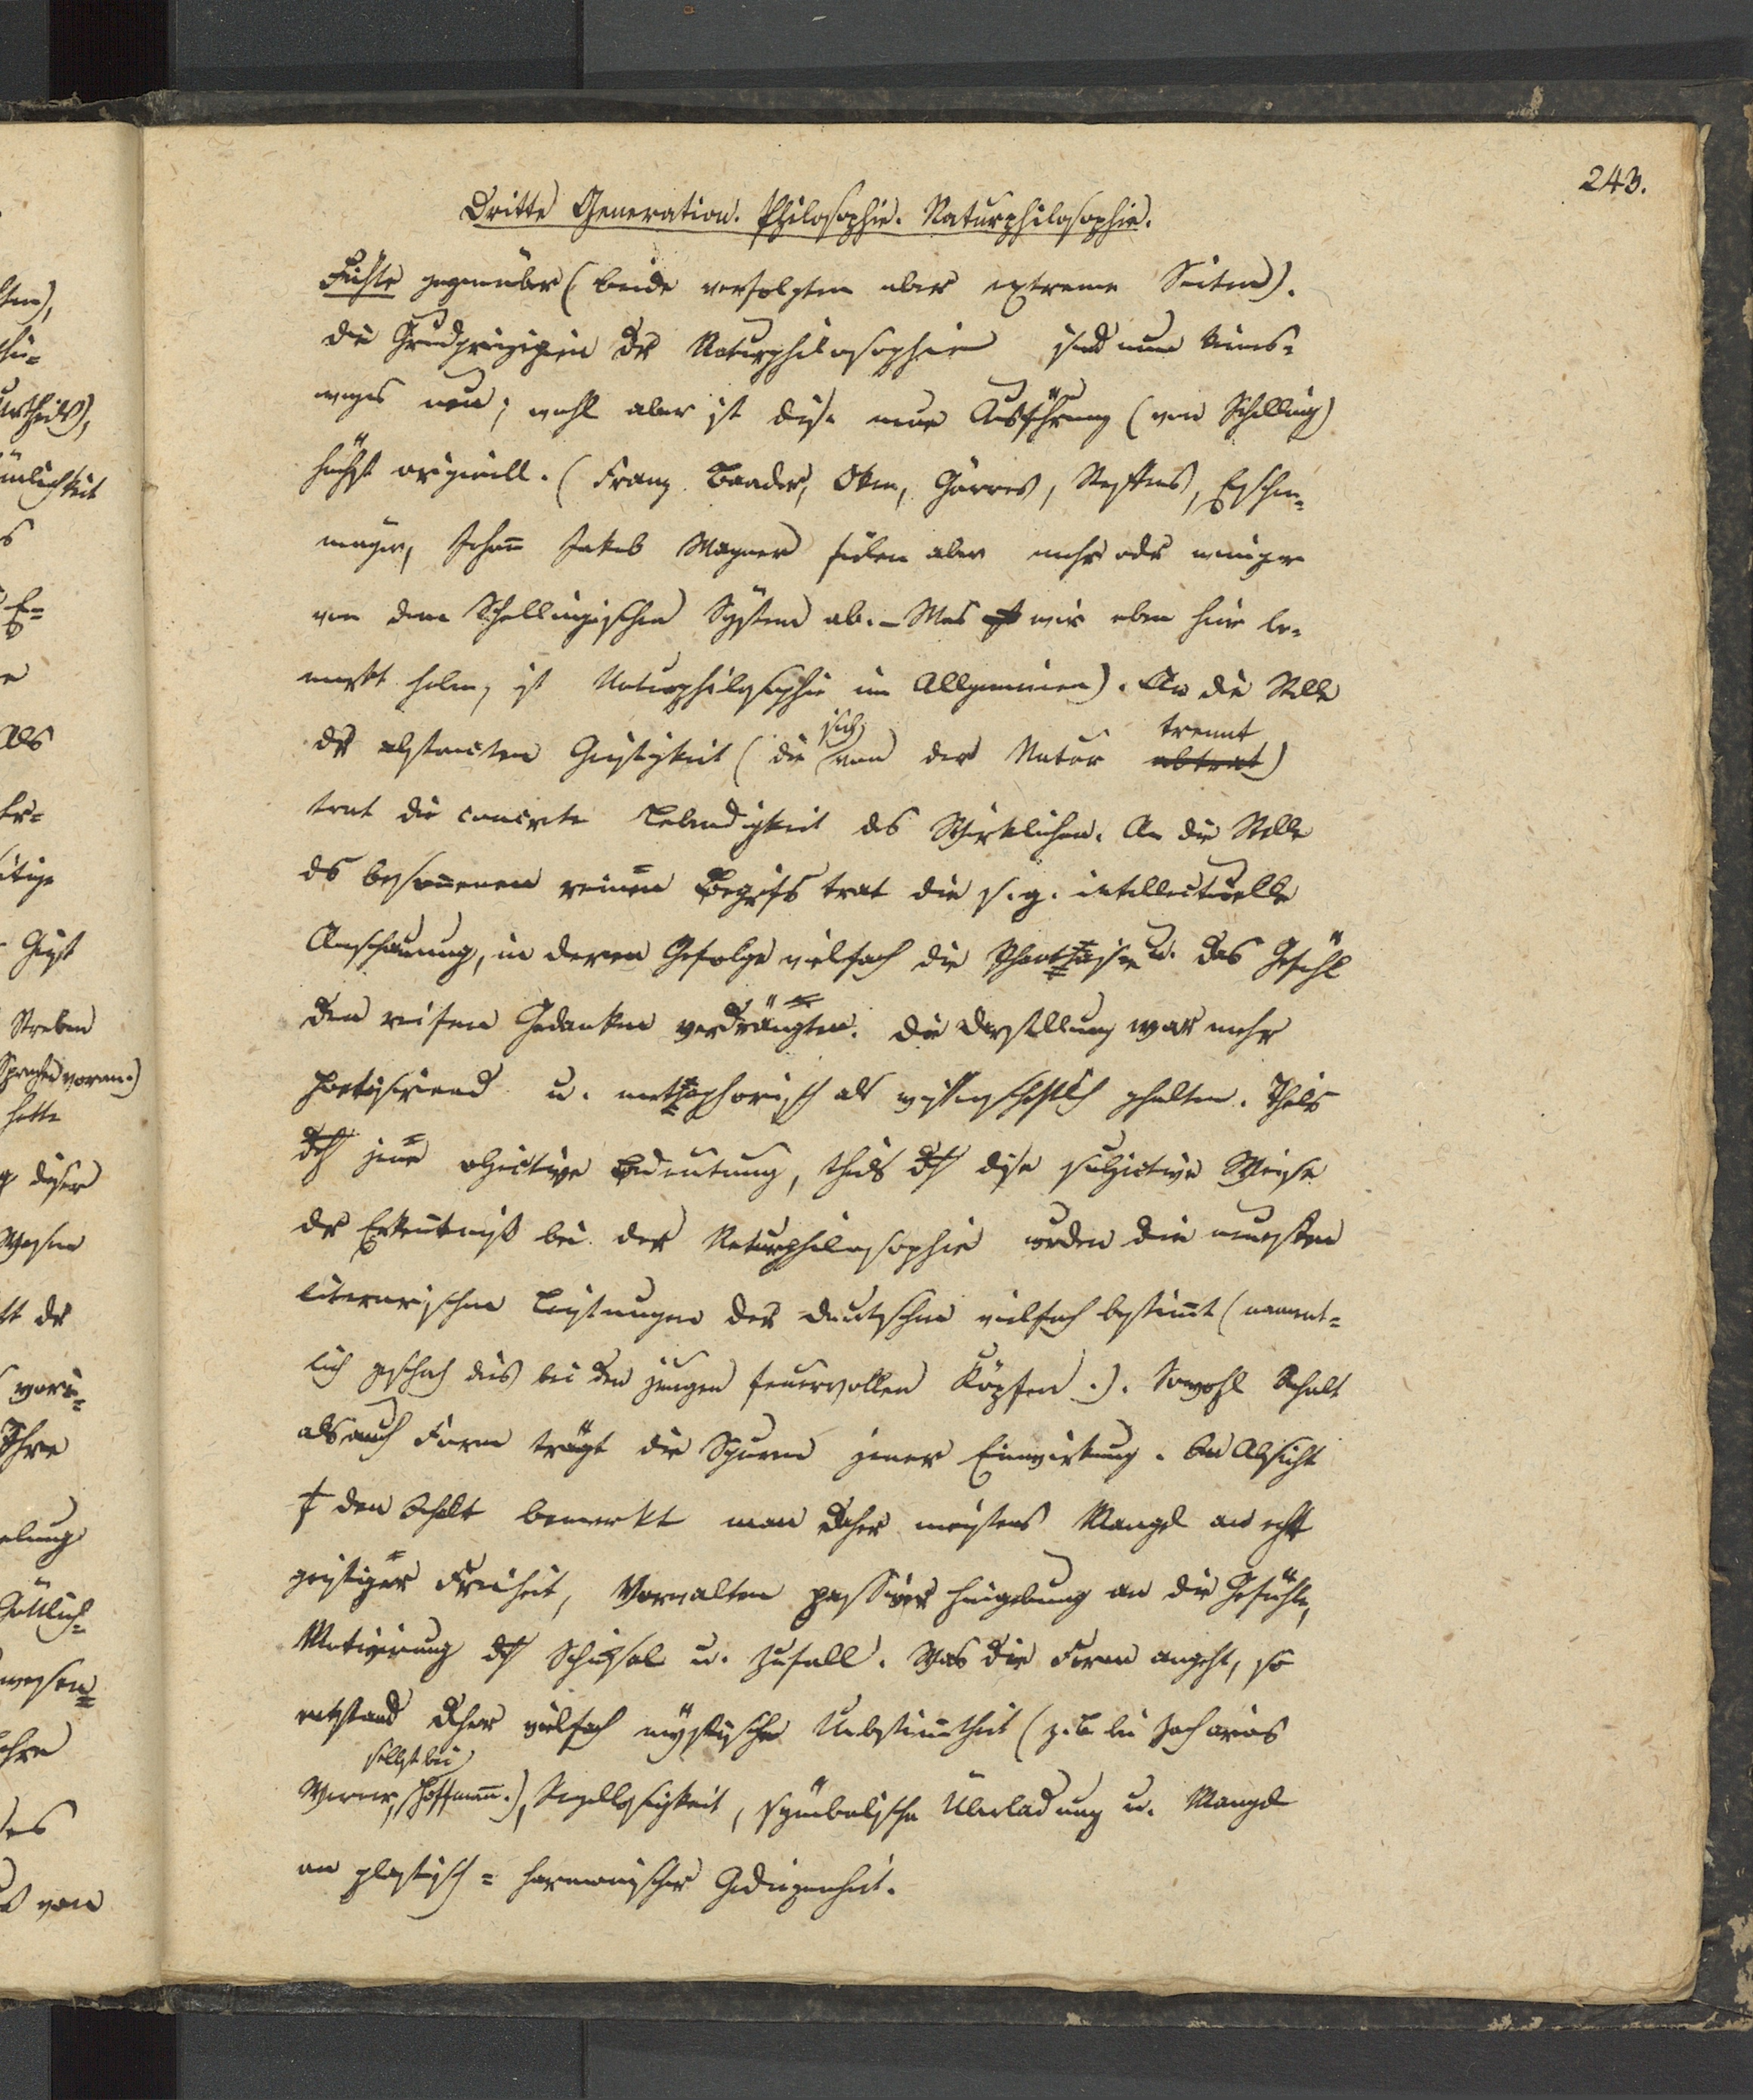 243.
Dritte Generation. Philosophie. Naturphilosophie.
Fichte gegenüber (beide verfolgten aber extreme Seiten).
Die Grundprinzipien der Naturphilosophie sind nun keins-
wegs neu; wohl aber ist diese neue Ausführung (von Schelling)
höchst originell. (Franz Baader, Oken, Görres, Steffens, Eschen-
mayer, Johann Jakob Wagner fielen aber mehr oder weniger
von dem Schellingischen System ab. – Was wir eben hier be-
merkt haben, ist Naturphilosophie im Allgemeinen). An die Stelle
der abstracten Geistigkeit (die sich von der Natur abtrat trennt)
trat die concrete Lebendigkeit des Wirklichen. An die Stelle
des besonnenen reinen Begrifs trat die s. g. intellectuelle
Anschauung, in deren Gefolge vielfach die Phantasie u. das Gefühl
den reifen Gedanken verdrängten. Die Darstellung war mehr
poetisirend u. metaphorisch als wissenschaftlich gehalten. Theils
durch jene objective Bedeutung, theils durch diese subjective Weise
der Erkentniß bei der Naturphilosophie wurden die neuesten
literarischen Leistungen der Deutschen vielfach bestimt (nament-
lich geschah dies bei den jungen feuervollen Köpfen.). Sowohl Gehalt
als auch Form trägt die Spuren jener Einwirkung. In Absicht
auf den Gehalt bemerkt man daher meistens Mangel an echt
geistiger Freiheit, Vorwalten passiver Hingebung an die Gefühle,
Motivirung durch Schicksal u. Zufall. Was die Form angeht, so
entstand daher vielfach mystische Unbestimtheit (z. B. bei Zacharias
Werner, selbst bei Hoffmann.), Regellosigkeit, symbolische Überladung u. Mangel
an plastisch-harmonischer Gediegenheit.